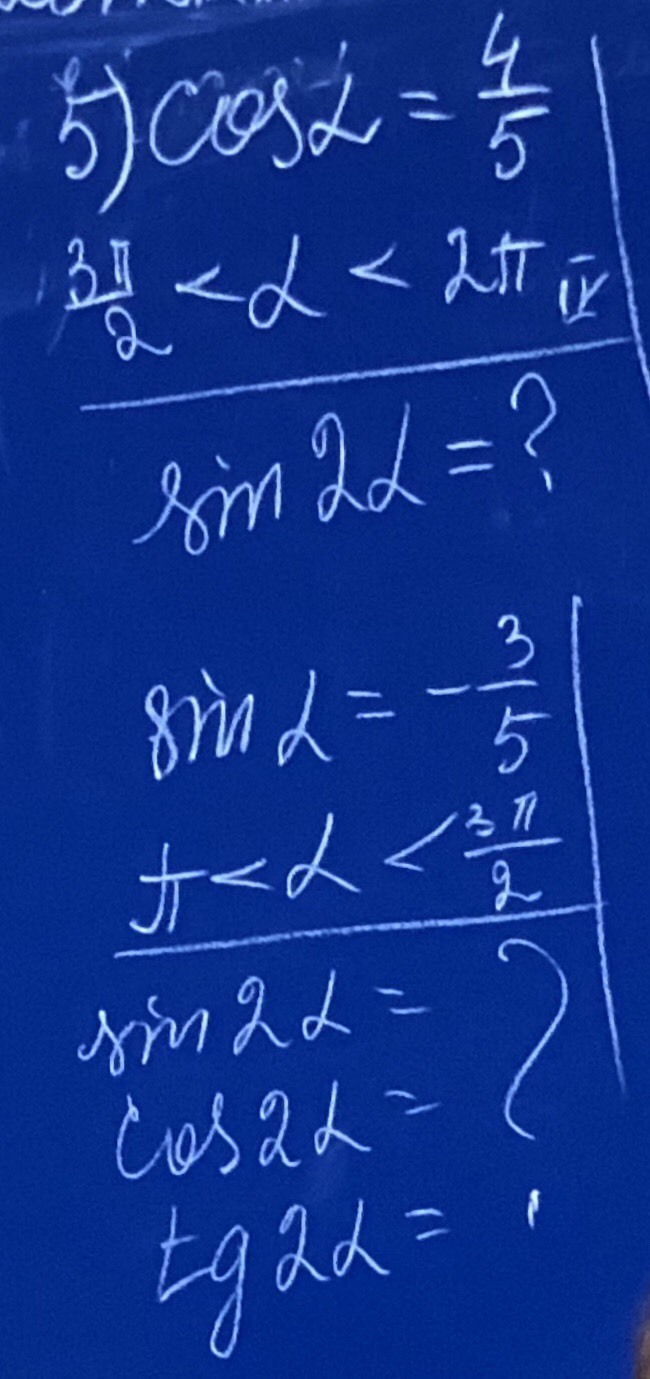 5) cos α = 4/5
3π/2 < α < 2π IV
sin 2α = ?
sin α = - 3/5
π < α < 3π/2
sin 2α =
cos 2α = ?
tg 2α =